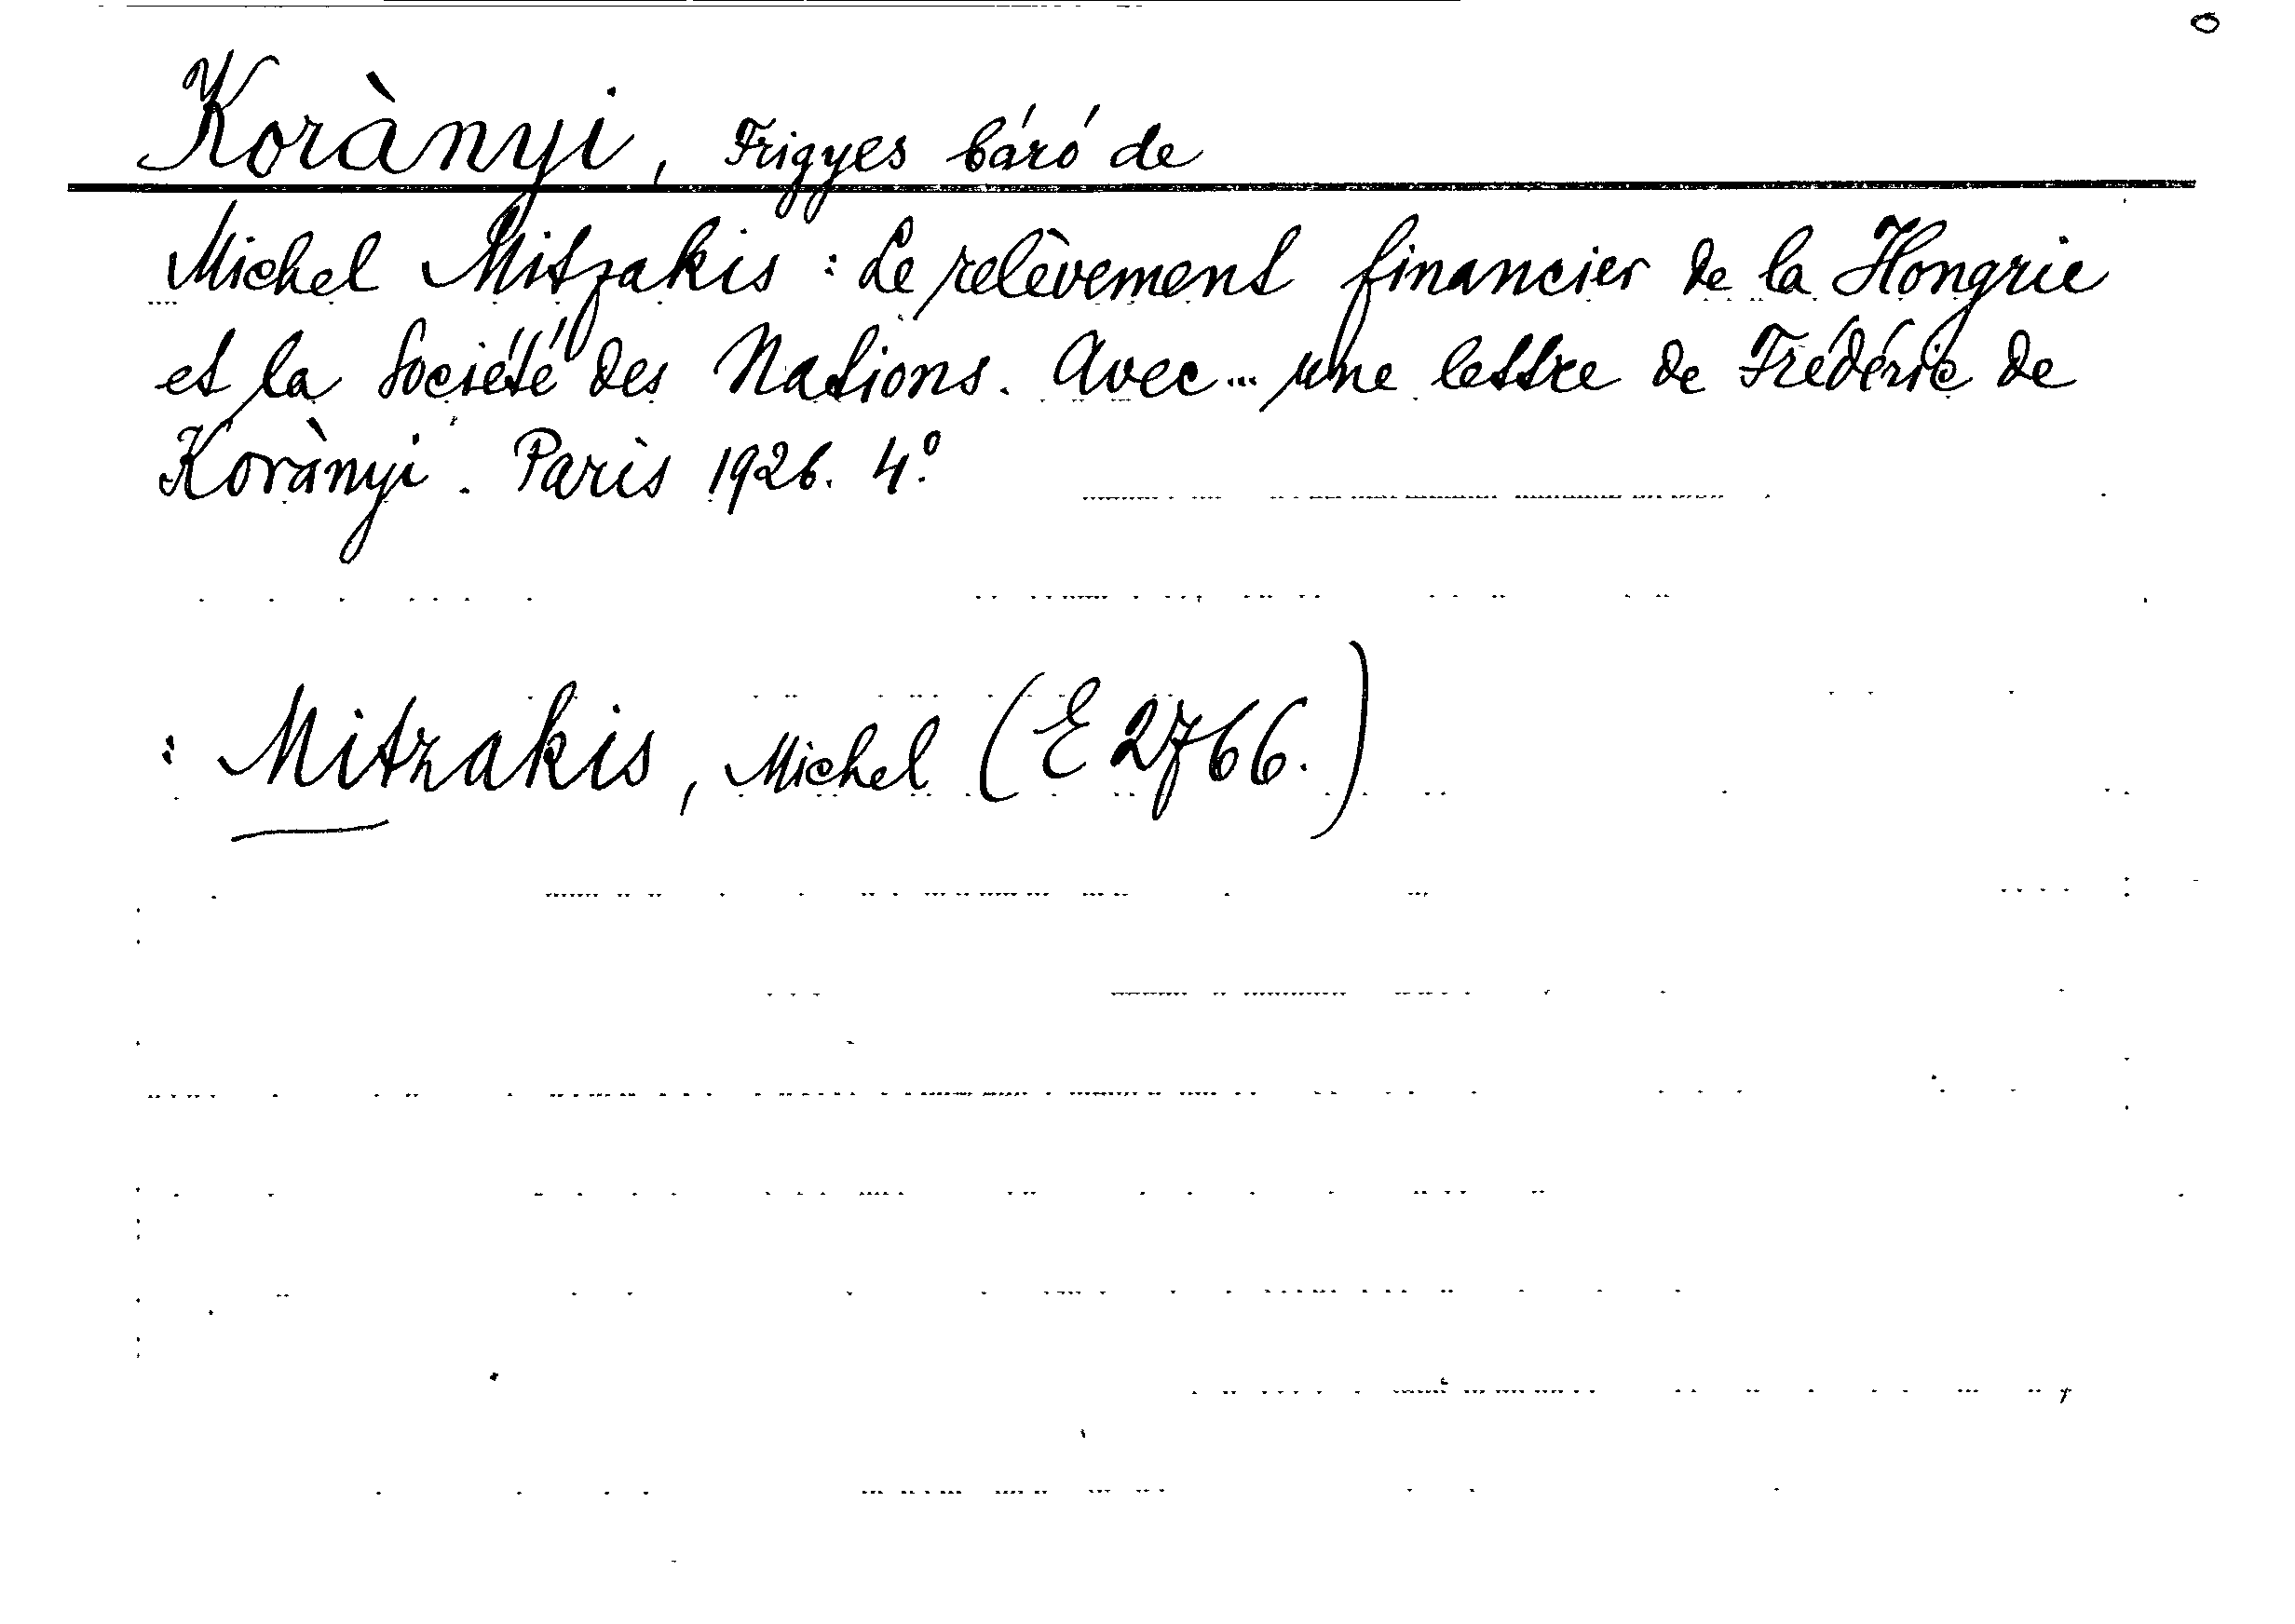 Korànyi, Frigyes báró de
Michel Mitzakis : Le relèvement financier de la Hongrie
et la Société des Nations. Avec... une lettre de Frédéric de
Korànyi. Paris 1926. 4°
: Mitzakis, Michel (E 2766.)